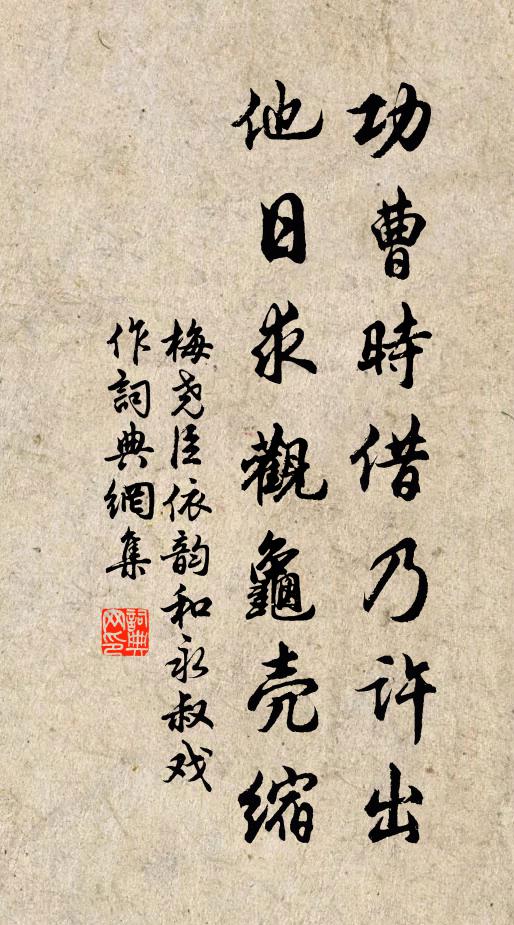 功曹時借乃許出
他日求觀龜壳縮
梅尧臣依韵和永叔戏
作詞典網集
詞典
网印